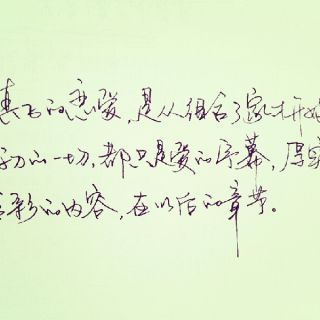 真正的恋爱,是从组合了家才开始
初的一切,都只是爱的序幕,厚实
彩的内容,在以后的章节。